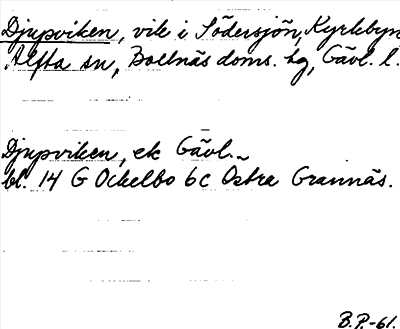 Djupviken, vik i Södersjön, Kyrkbyn
Alfta sn, Bollnäs doms. hg, Gävl. l.
Djupviken, ek Gävl.
bl. 14 G Ockelbo 6c Östra Grannäs.
B.P.-61.